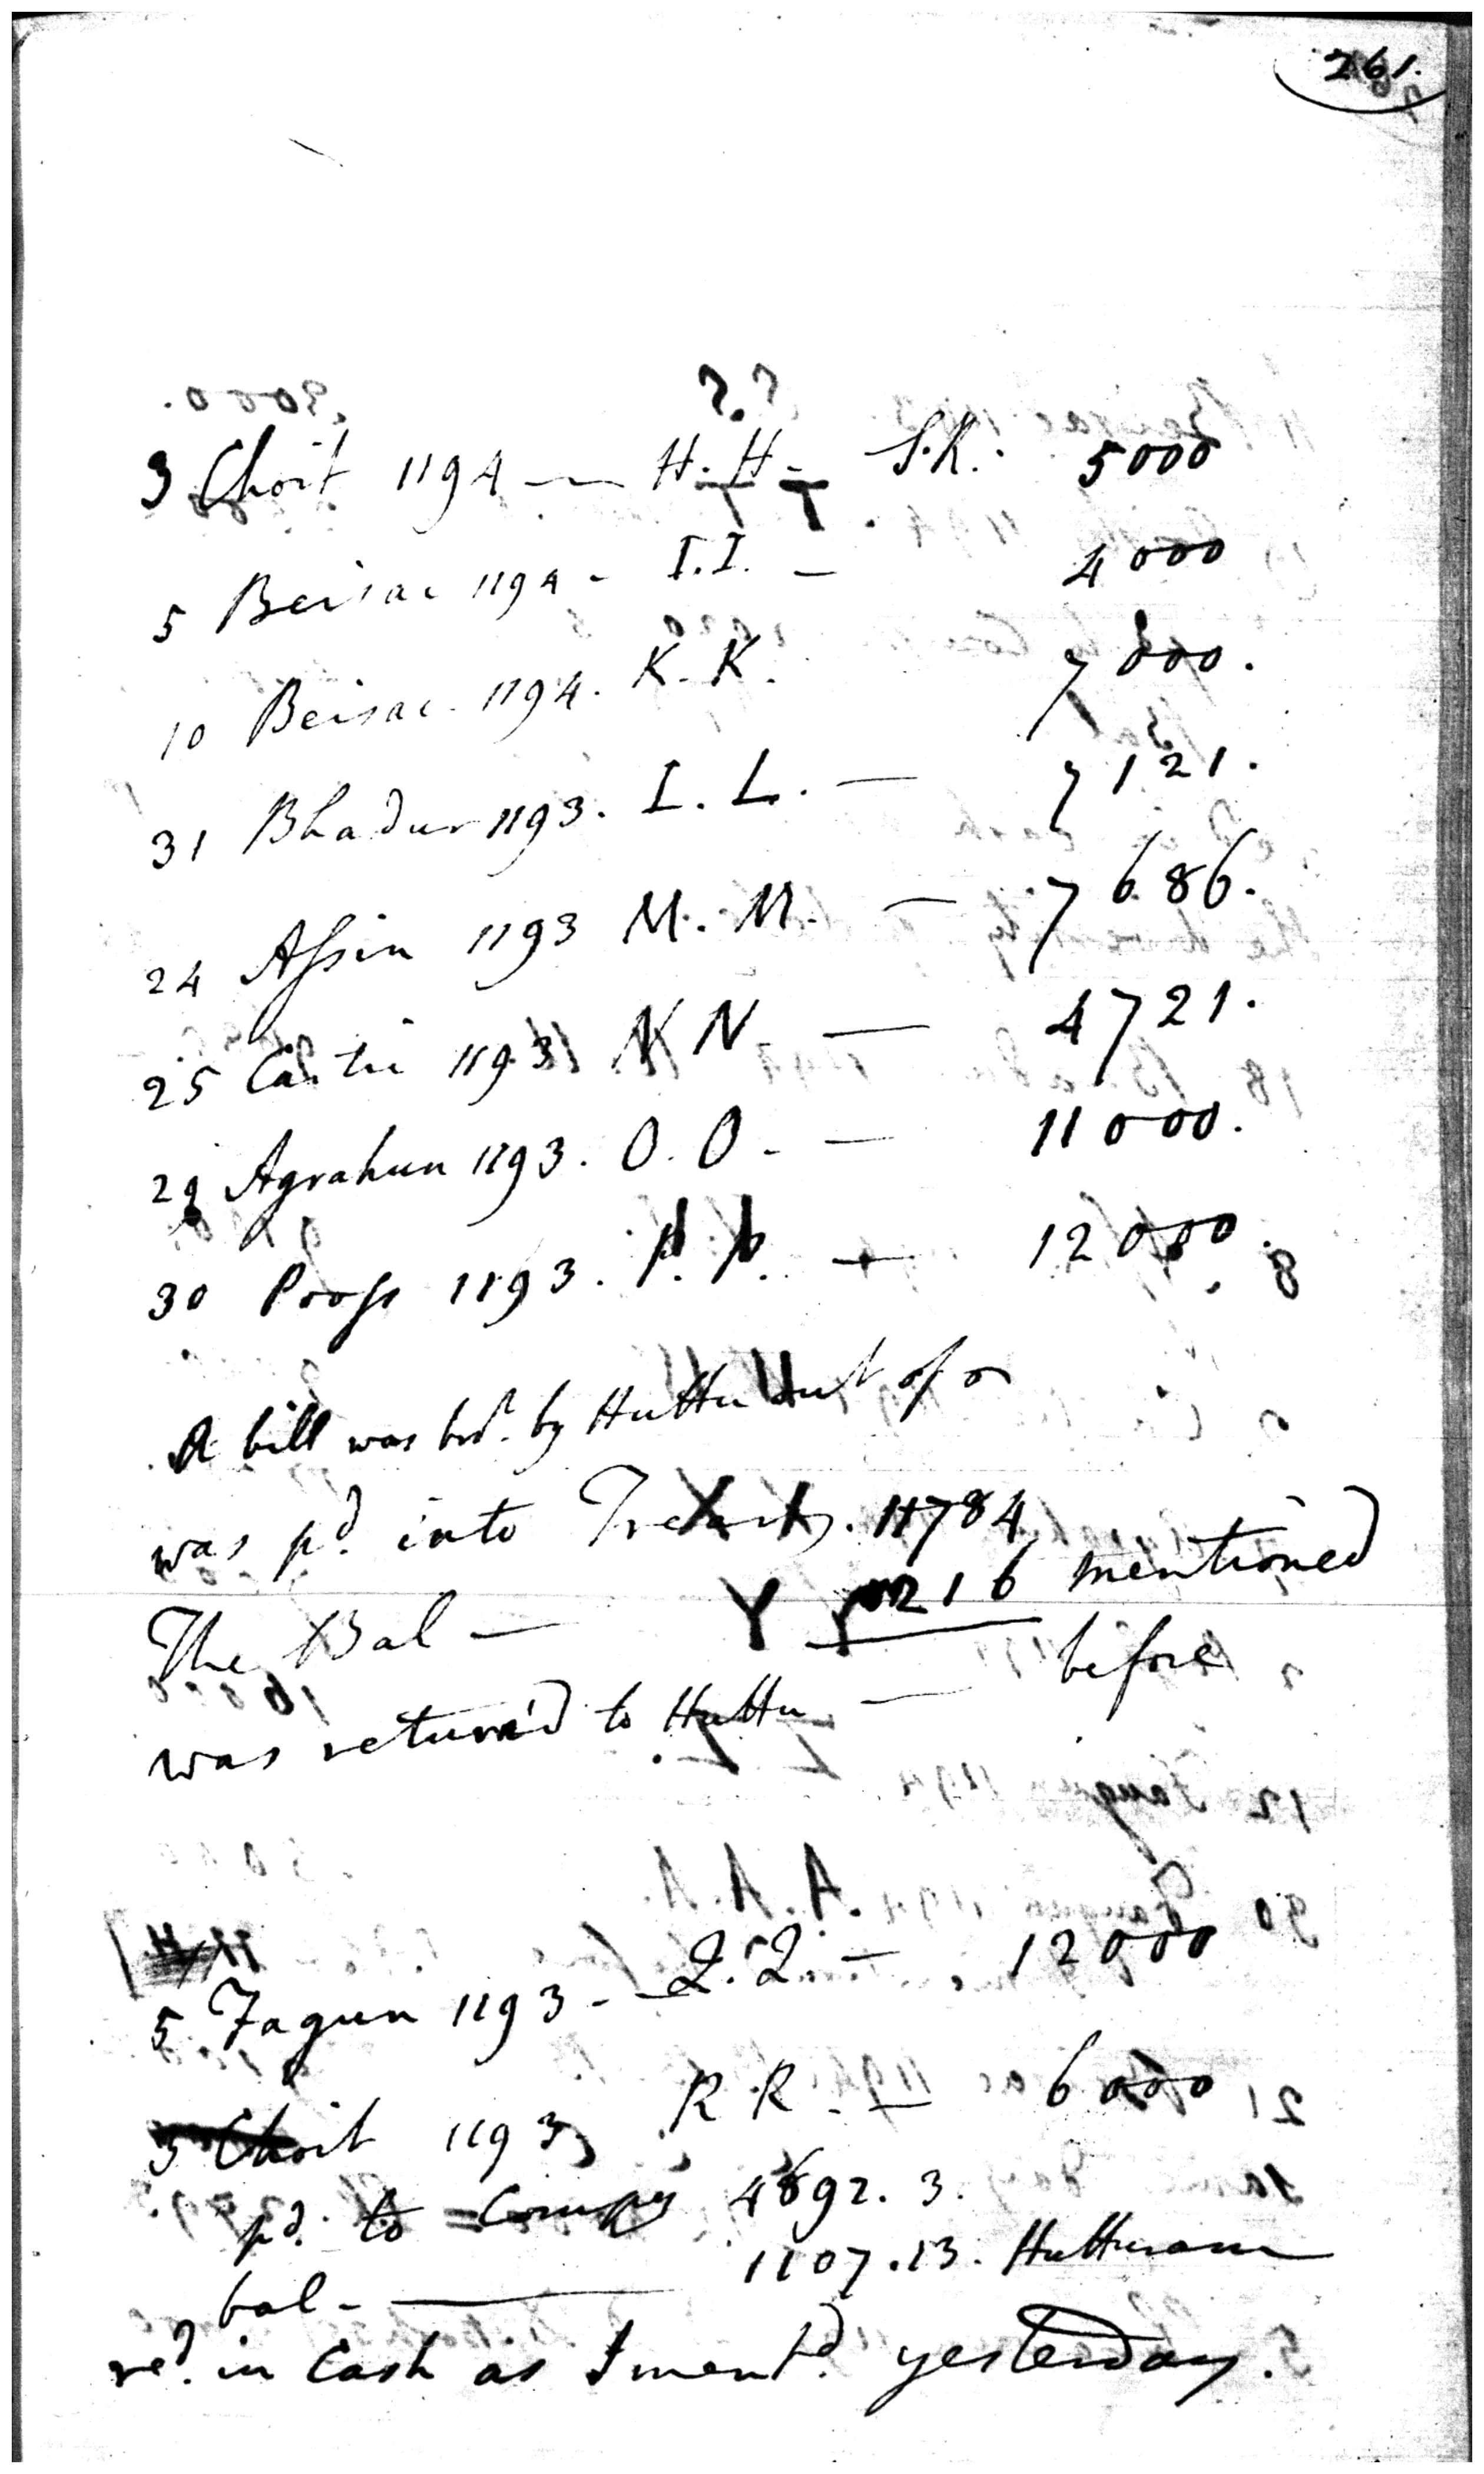 261.
3 Choit 1194 — H. H — S.R. 5000
5 Beisac 1194 - I.I. — 4000
10 Beisac 1194. K. K. 7000.
31 Bhadur 1193. I. L. — 7121.
24 Assin 1193 M. M. — 7686.
25 Cartic 1193 N N — 4721.
29 Agrahun 1193. O. O - — 11000.
30 Pooss 1193. P. P. — 12000.
A bill was bot. by Huttu out of
was pd. into Treasy. 11784
The Bal — 216 mentioned
was return'd to Huttu — before
5 Fagun 1193 - 2. 2. — 12000
5 Choit 1193 R R. — 6000
pd. to Compy 4892. 3.
bal - — 1107. 13. Hutturam
red. in Cash as I mentd. yesterday.